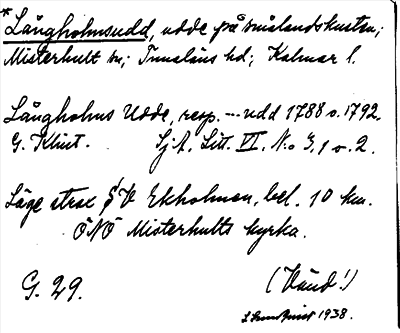 *Långholmsudd, udde på smålandskusten;
Misterhult sn; Tunaläns hd; Kalmar l.
Långholms Udde, resp. --- udd 1788 o. 1792.
G. Klint. Sj. A. Litt. VI. N:o 3, 1 o. 2.
Läge strax SV Ekholmen, bel. 10 km.
ÖNÖ Misterhults kyrka.
G. 29. (Vänd!)
1938.